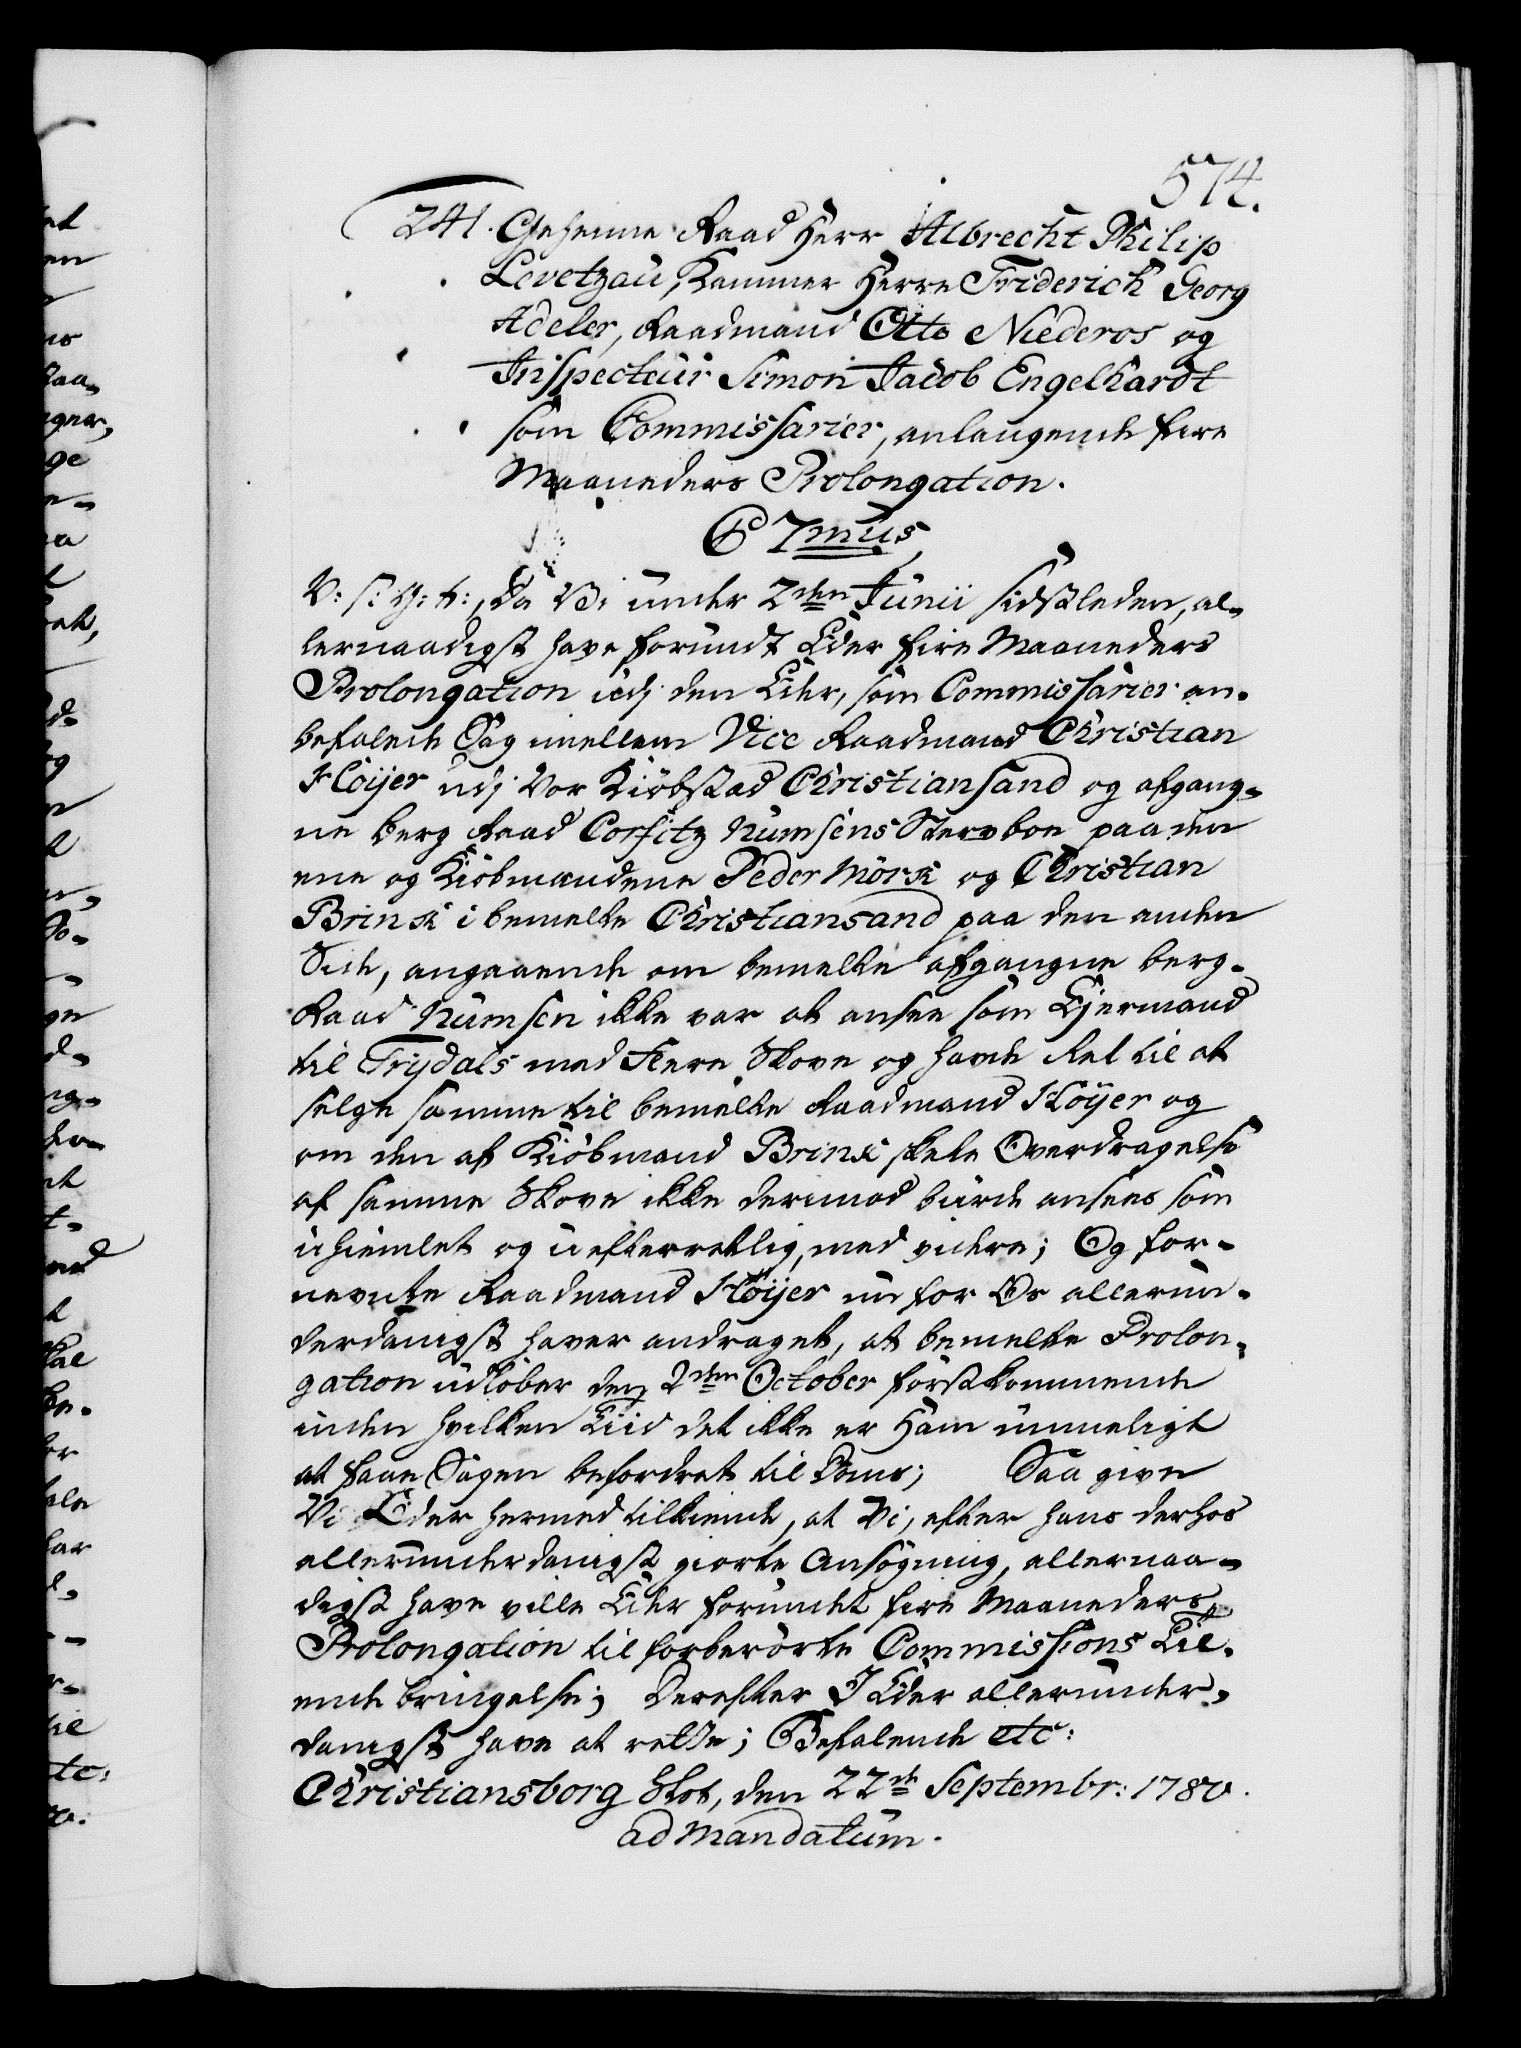 574.
241. Geheime Raad Herr Albrecht Philip
Levetzau, Kammer Herre Friderich Georg
Adeler, Raadmand Otto Niederos og
Inspecteur Simon Jacob Engelhardt
som Commissarier, anlangende fire
Maaneders Prolongation.
C 7mus
V: S: G: T:, Da Vi under 2den Junii sidstleden, al-
lernaadigst have forundt Eder fire Maaneders
Prolongation udj den Eder, som Commissarier an-
befalede Sag imellem Vice Raadmand Christian
Höijer udj Vor Kiöbstad Christiansand og afgang-
ne Berg Raad Corfitz Numsens Stervboe paa den
ene og Kiöbmændene Peder Mörk og Christian
Brinck i bemelte Christiansand paa den anden
Side, angaaende om bemelte afgangne Berg-
Raad Numsen ikke var at ansee som Ejermand
til Trydals med fleere Skove og havde Ret til at
selge samme til bemelte Raadmand Höijer og
om den af Kiöbmand Brink skete Overdragelse
af samme Skove ikke derimod burde ansees som
uhiemlet og uefterrettlig, med videre; Og for-
nevnte Raadmand Höijer nu for Os allerun-
derdanigst haver andraget, at bemelte Prolon-
gation udlöber den 2den October förstkommende
inden hvilken Tiid det ikke er Ham mueligt
at faae Sagen befordret til Doms; Saa give
Vi Eder hermed tilkiende, at Vi, efter hans derhos
allerunderdanigst giorte Ansögning, allernaa-
digst have ville Eder forundet fire Maaneders
Prolongation til forberörte Commissions Til-
endebringelse; Derefter I Eder allerunder-
danigst have at rette; Befalende etc:
Christiansborg Slot, den 22de Septembr: 1780.
ad Mandatum.